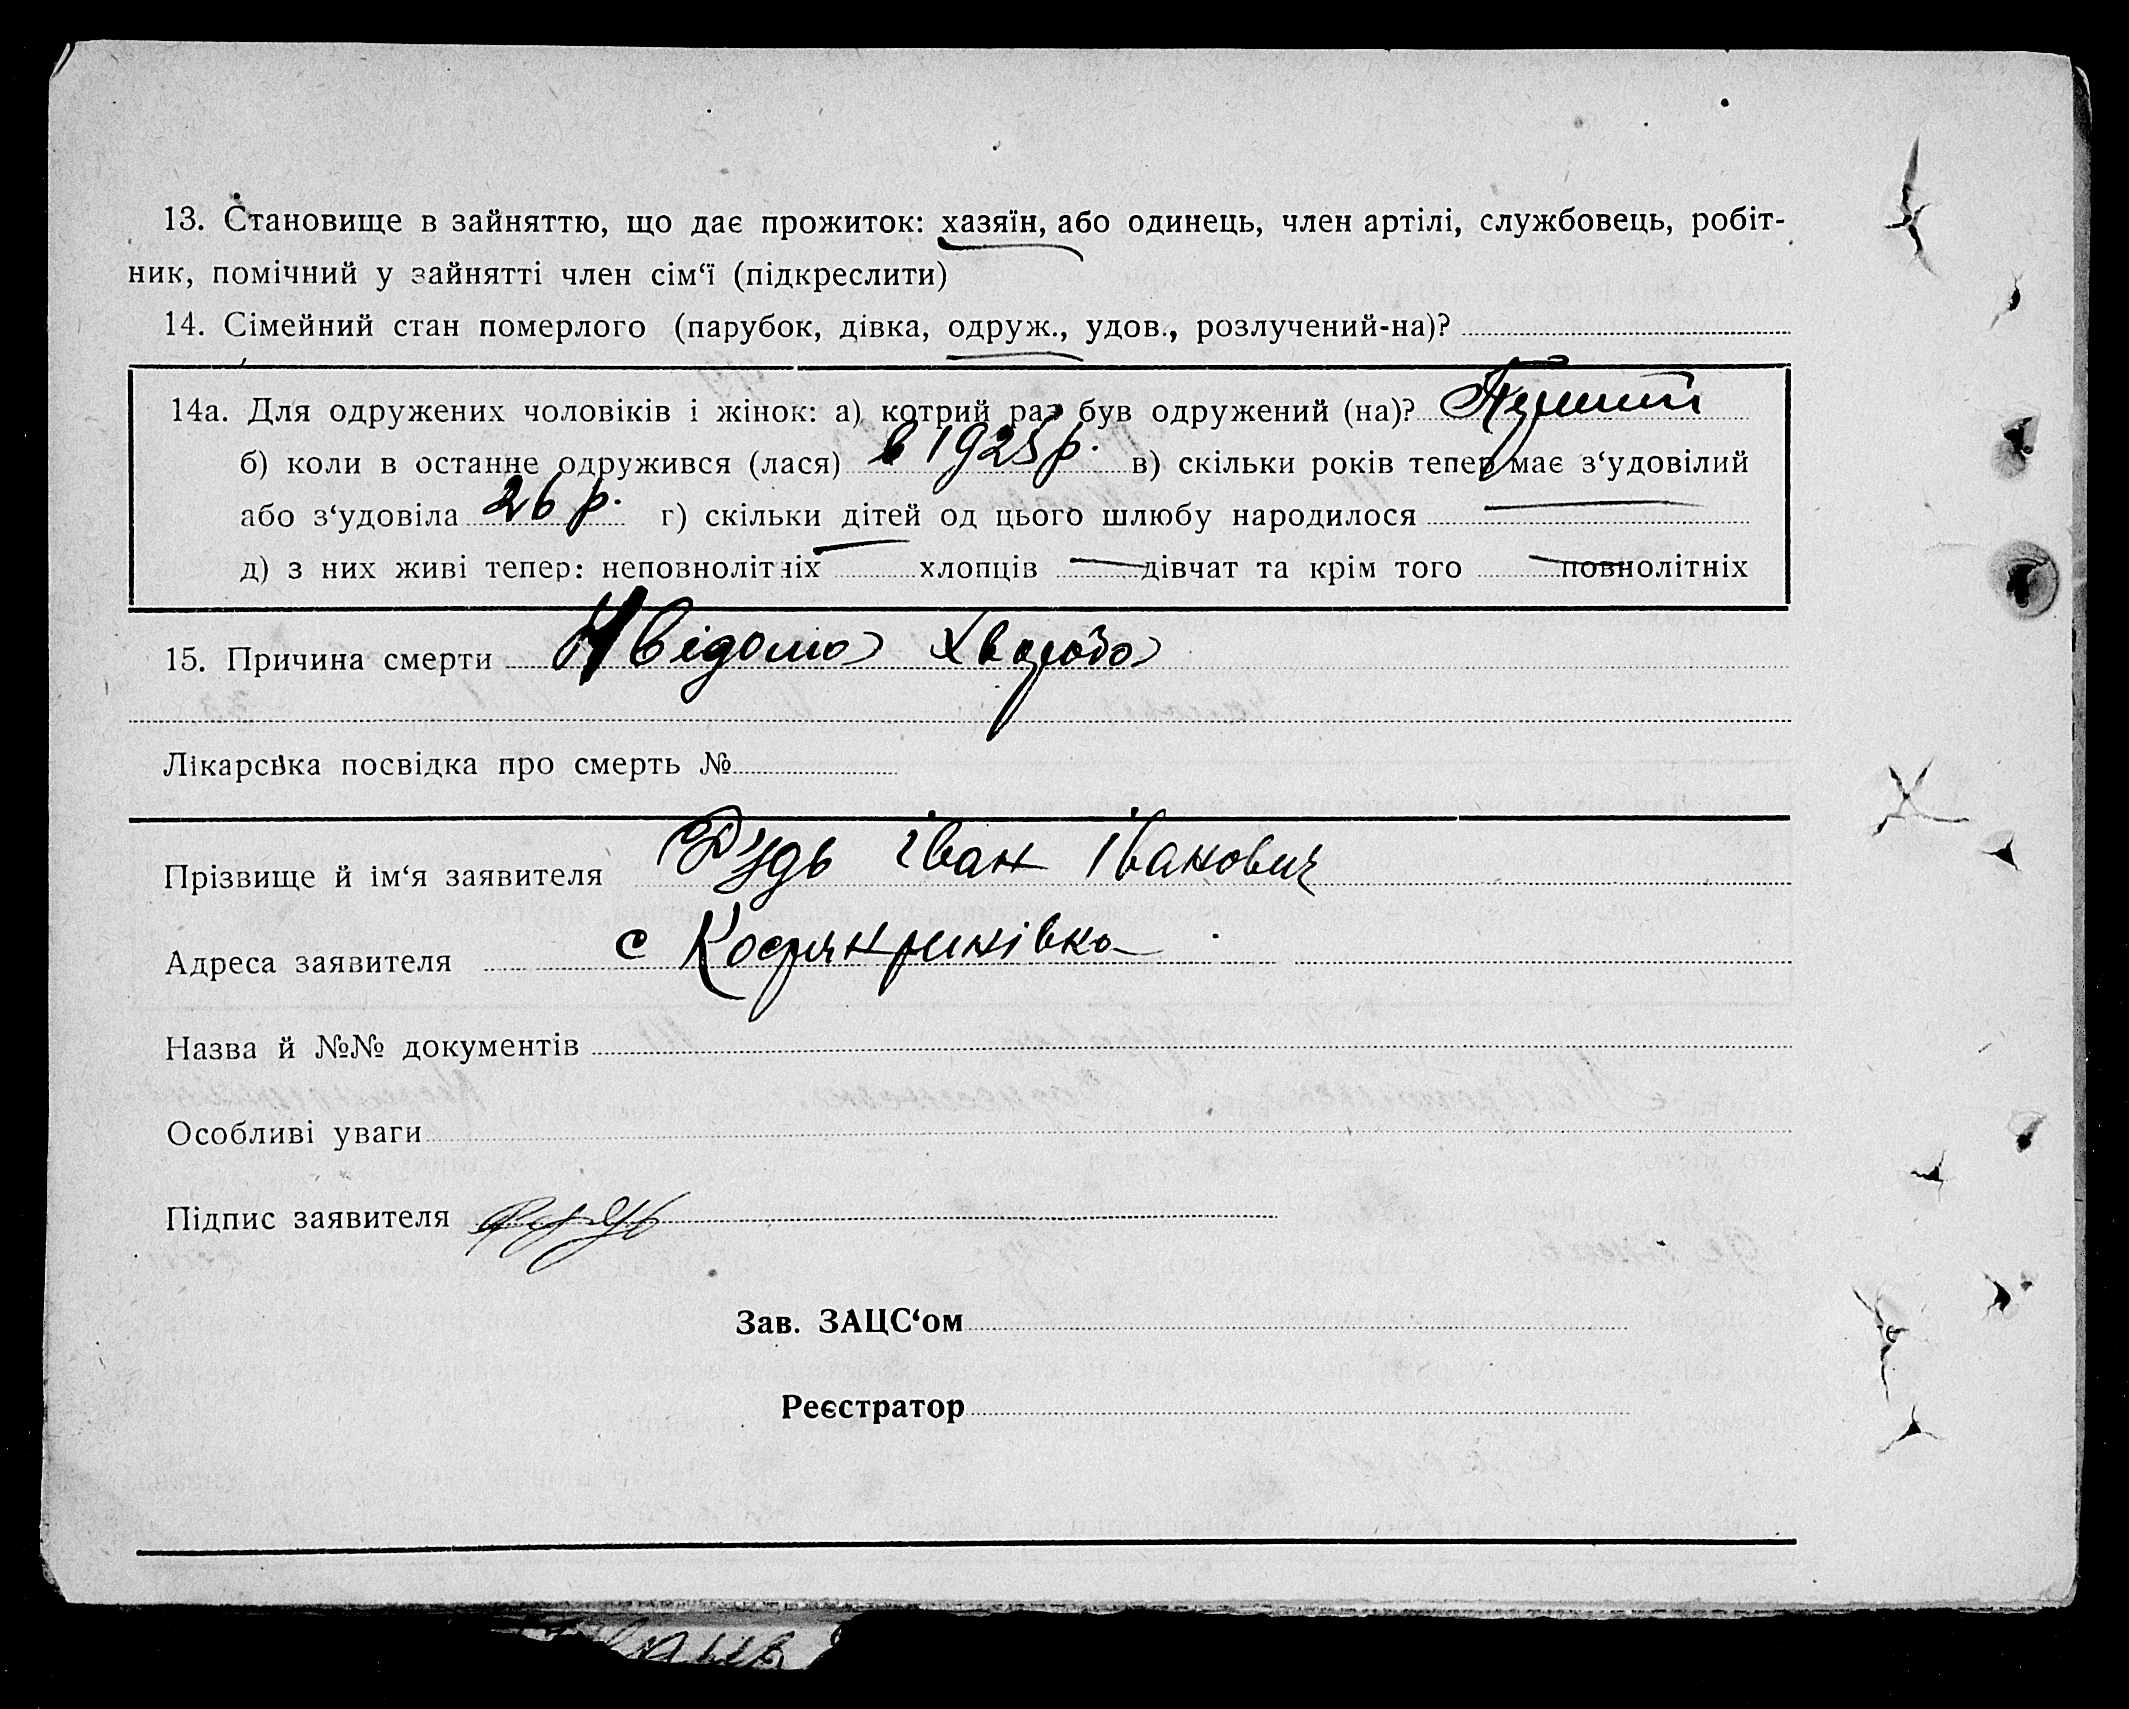 13. Становище в зайняттю, що дає прожиток: хазяїн, або одинець, член артілі, службовець, робіт-
ник, помічний у зайнятті член сім‘ї (підкреслити)
14. Сімейний стан померлого (парубок, дівка, одруж., удов., розлучений-на)?
14а. Для одружених чоловіків і жінок: а) котрий раз був одружений (на)?
б) коли в останнє одружився (лася) в 1925 р. в) скільки років тепер має з‘удовілий
або з‘удовіла 26 р. г) скільки дітей од цього шлюбу народилося —
д) з них живі тепер: неповнолітніх — хлопців — дівчат та крім того — повнолітніх
15. Причина смерти Нвідома хвороба
Лікарська посвідка про смерть №
Прізвище й ім‘я заявителя Рудь Іван Іванович
Адреса заявителя с
Назва й №№ документів
Особливі уваги
Підпис заявителя Рудь
Зав. ЗАЦС‘ом
Реєстратор